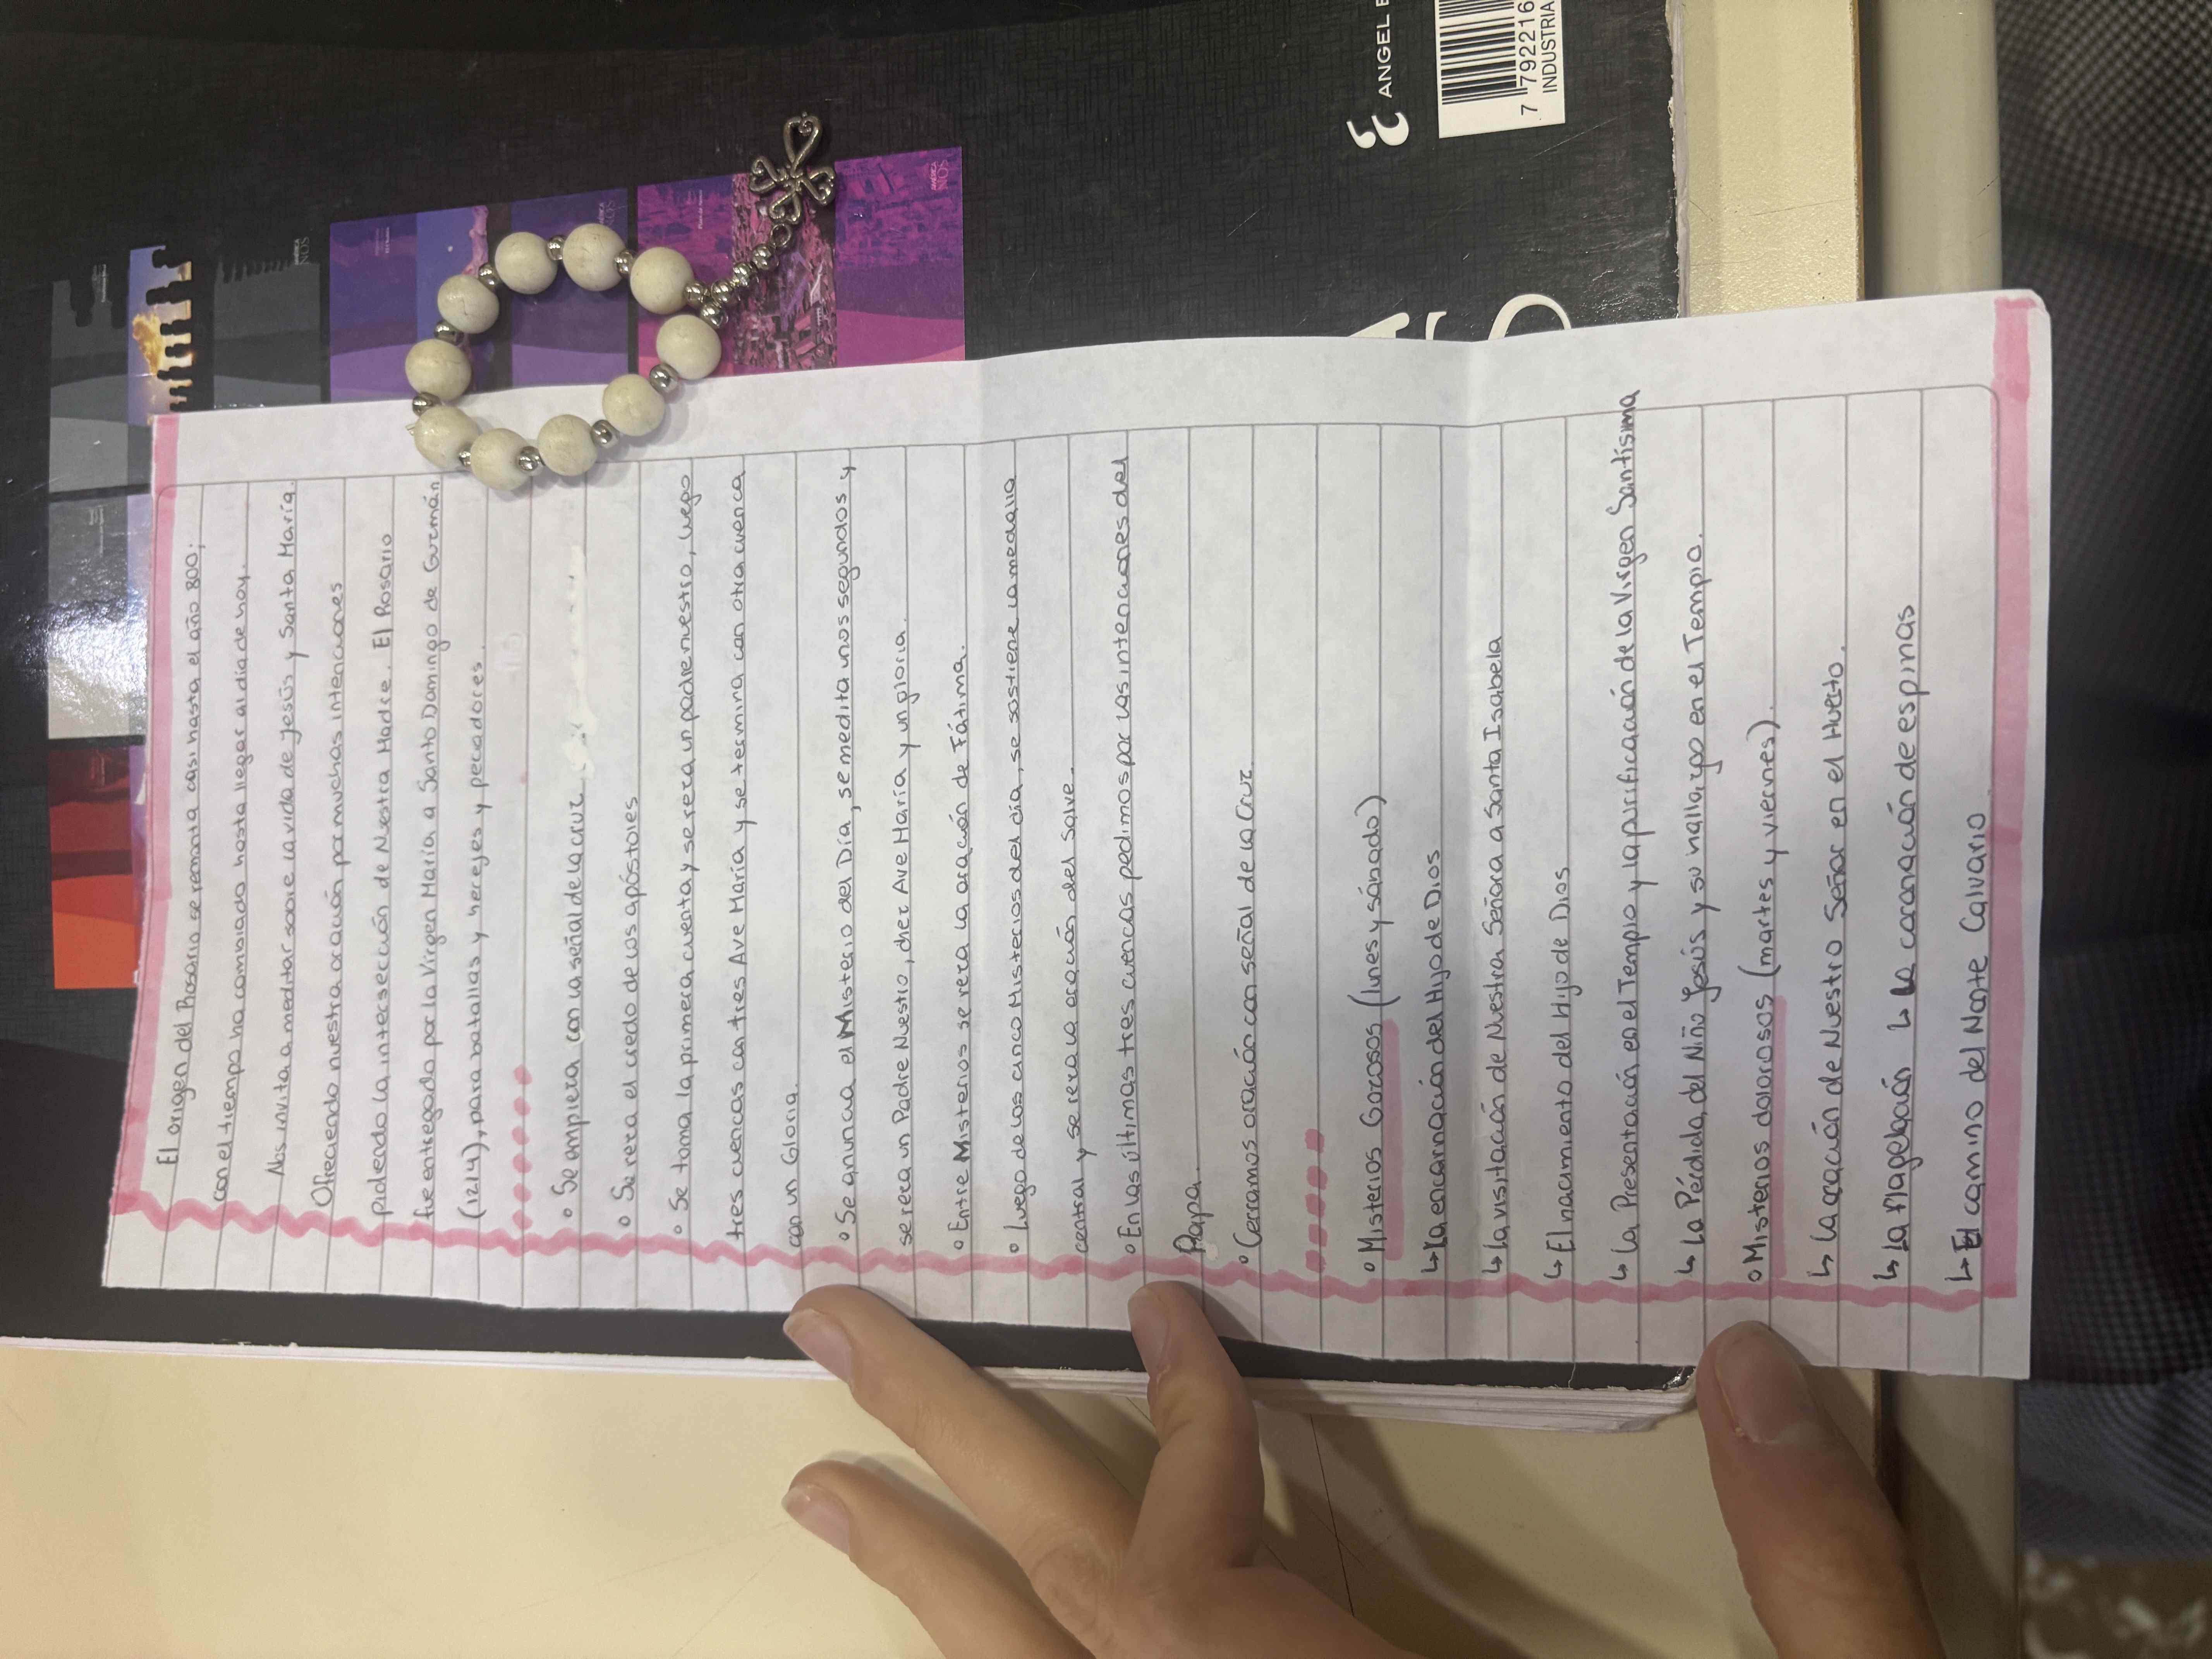 El origen del Rosario se remonta casi hasta el año 800;
con el tiempo ha cambiado hasta llegar al día de hoy.
Nos invita a meditar sobre la vida de Jesús y Santa María.
Ofreciendo nuestra oración por muchas intenciones
pidiendo la intersección de Nuestra Madre. El Rosario
fue entregado por la Virgen María a Santo Domingo de Guzmán
(1214), para batallas y herejes y pecadores.
• Se empieza con la señal de la cruz
• Se reza el credo de los apóstoles
• Se toma la primera cuenta y se reza un padre nuestro, luego
tres cuencas con tres Ave María y se termina con otra cuenca
con un Gloria.
• Se anuncia el Misterio del Día, se medita unos segundos y
se reza un Padre Nuestro, diez Ave María y un gloria.
• Entre Misterios se reza la oración de Fátima.
• Luego de los cinco Misterios del día, se sostiene la medalla
central y se reza la oración del Salve.
• En las últimas tres cuencas pedimos por las intenciones del
Papa.
• Cerramos oración con señal de la Cruz.
• Misterios Gozosos (lunes y sánado)
↳ La encarnación del Hijo de Dios
↳ La visitación de Nuestra Señora a Santa Isabela
↳ El nacimiento del Hijo de Dios
↳ La Presentación en el Templo y la purificación de la Virgen Santísima
↳ La Pérdida del Niño Jesús y su hallazgo en el Templo.
• Misterios dolorosos (martes y viernes).
↳ La oración de Nuestro Señor en el Huerto.
↳ La flagelación ↳ La coronación de espinas
↳ El camino del Monte Calvario
ANGEL E
7 792216
INDUSTRIA
AMÉRICA
NOS